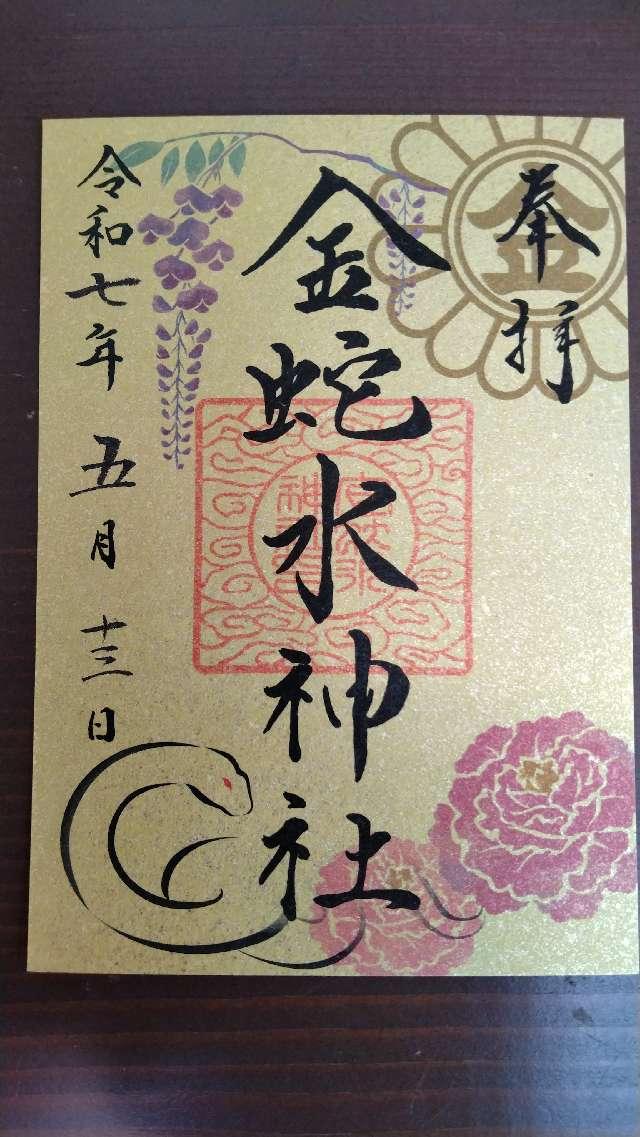 奉拝
金
金蛇水神社
令和七年 五月 十三日